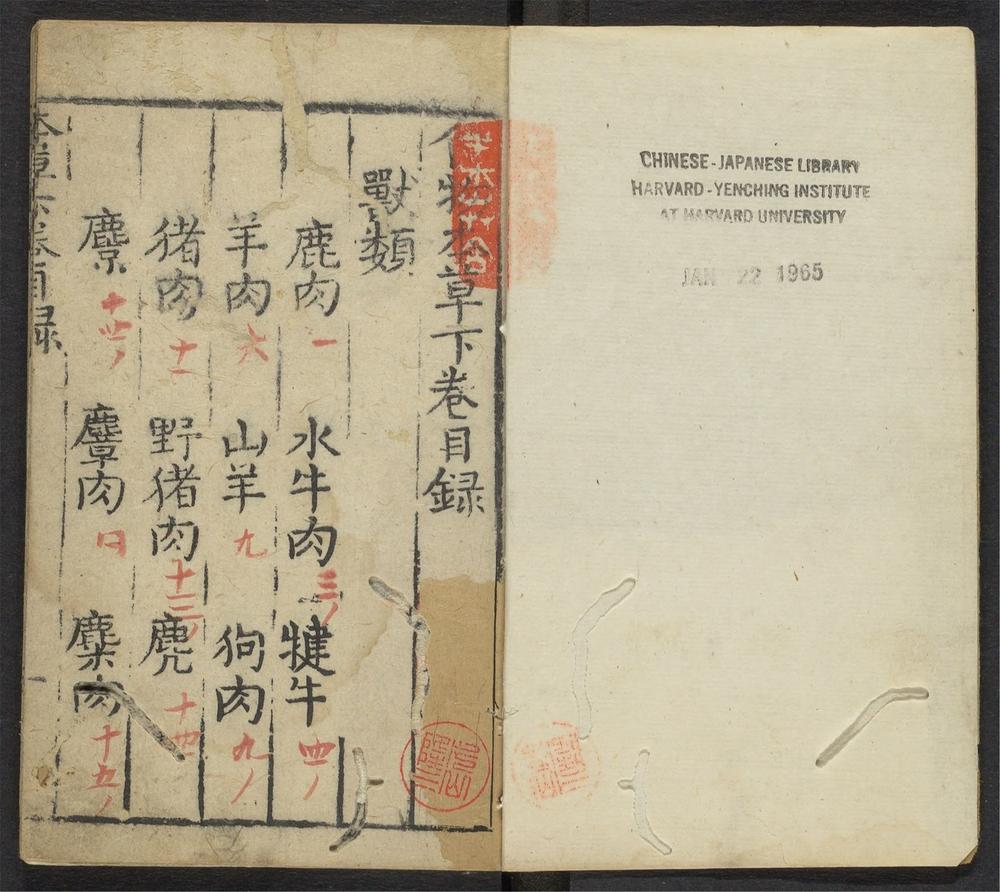 CHINESE-JAPANESE LIBRARY
HARVARD-YENCHING INSTITUTE
AT HARVARD UNIVERSITY
JAN 22 1965
物本草下卷目録
獸類
鹿肉 一 水牛肉 三 犍牛 四
羊肉 六 山羊 九 狗肉 九
猪肉 十一 野猪肉 十三 麂 十四
麖 十四 麞肉 麋肉 十五
本草下卷目録